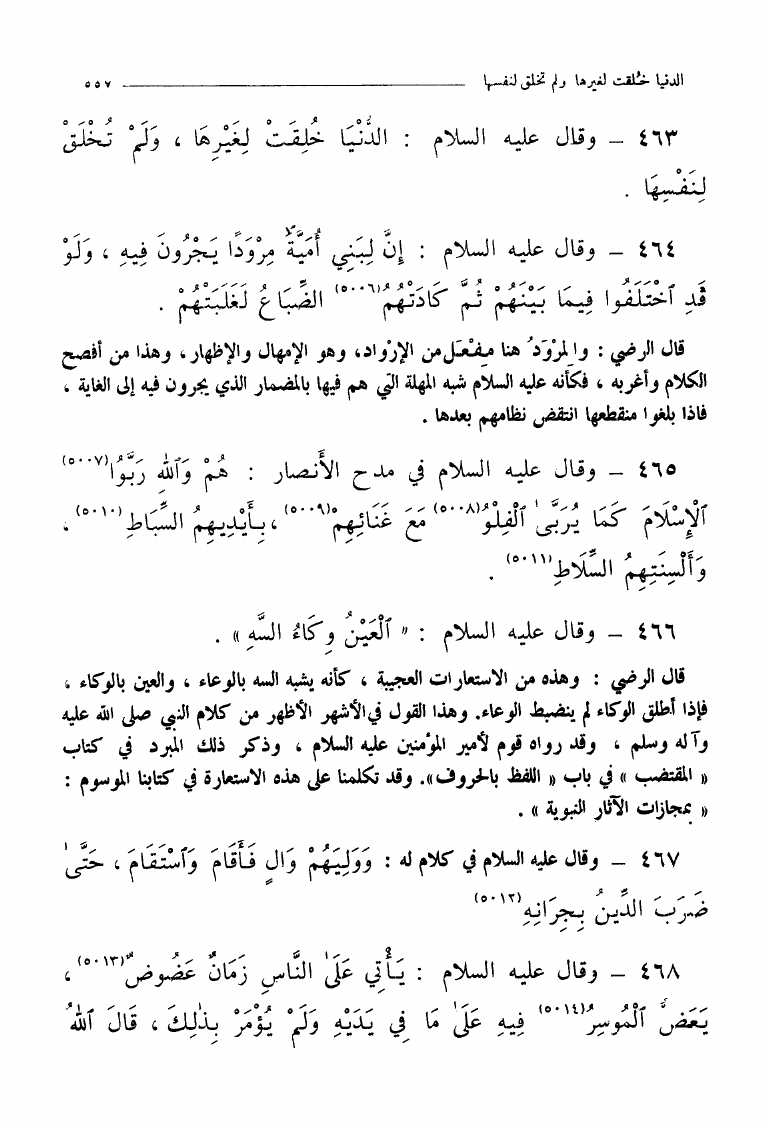 الدنيا خُلقت لغيرها ولم تخلق لنفسها ــــــــــــــــ ٥٥٧
٤٦٣ – وقال عليه السلام : الدُّنْيَا خُلِقَتْ لِغَيْرِهَا ، وَلَمْ تُخْلَقْ
لِنَفْسِهَا .
٤٦٤ – وقال عليه السلام : إِنَّ لِبَنِي أُمَيَّةَ مِرْوَدًا يَجْرُونَ فِيهِ ، وَلَوْ
قَدِ ٱخْتَلَفُوا فِيمَا بَيْنَهُمْ ثُمَّ كَادَتْهُمُ(٥٠٠٦) الضِّبَاعُ لَغَلَبَتْهُمْ .
قال الرضي : والمِرْوَدُ هنا مِفْعَل من الإرْواد، وهو الإمهال والإظهار، وهذا من أفصح
الكلام وأغربه ، فكأنه عليه السلام شبه المهلة التي هم فيها بالمضمار الذي يجرون فيه إلى الغاية ،
فاذا بلغوا منقطعها انتقض نظامهم بعدها .
٤٦٥ – وقال عليه السلام في مدح الأنصار : هُمْ وَٱللهِ رَبَّوُا(٥٠٠٧)
ٱلْإِسْلَامَ كَمَا يُرَبَّىٰ ٱلْفِلْوُ(٥٠٠٨) مَعَ غَنَائِهِمْ(٥٠٠٩) ، بِأَيْدِيهِمُ السِّبَاطِ(٥٠١٠) ،
وَأَلْسِنَتِهِمُ السِّلَاطِ(٥٠١١) .
٤٦٦ – وقال عليه السلام : « ٱلْعَيْنُ وِكَاءُ السَّهِ » .
قال الرضي : وهذه من الاستعارات العجيبة ، كأنه يشبه السه بالوعاء ، والعين بالوكاء ،
فإذا أطلق الوكاء لم ينضبط الوعاء. وهذا القول في الأشهر الأظهر من كلام النبي صلى الله عليه
وآله وسلم ، وقد رواه قوم لأمير المؤمنين عليه السلام ، وذكر ذلك المبرد في كتاب
« المقتضب » في باب « اللفظ بالحروف». وقد تكلمنا على هذه الاستعارة في كتابنا الموسوم :
« بمجازات الآثار النبوية » .
٤٦٧ – وقال عليه السلام في كلام له : وَوَلِيَهُمْ وَالٍ فَأَقَامَ وَٱسْتَقَامَ ، حَتَّىٰ
ضَرَبَ الدِّينُ بِجِرَانِهِ(٥٠١٢)
٤٦٨ – وقال عليه السلام : يَأْتِي عَلَىٰ النَّاسِ زَمَانٌ عَضُوضٌ(٥٠١٣) ،
يَعَضُّ ٱلْمُوسِرُ(٥٠١٤) فِيهِ عَلَىٰ مَا فِي يَدَيْهِ وَلَمْ يُؤْمَرْ بِذٰلِكَ ، قَالَ ٱللهُ